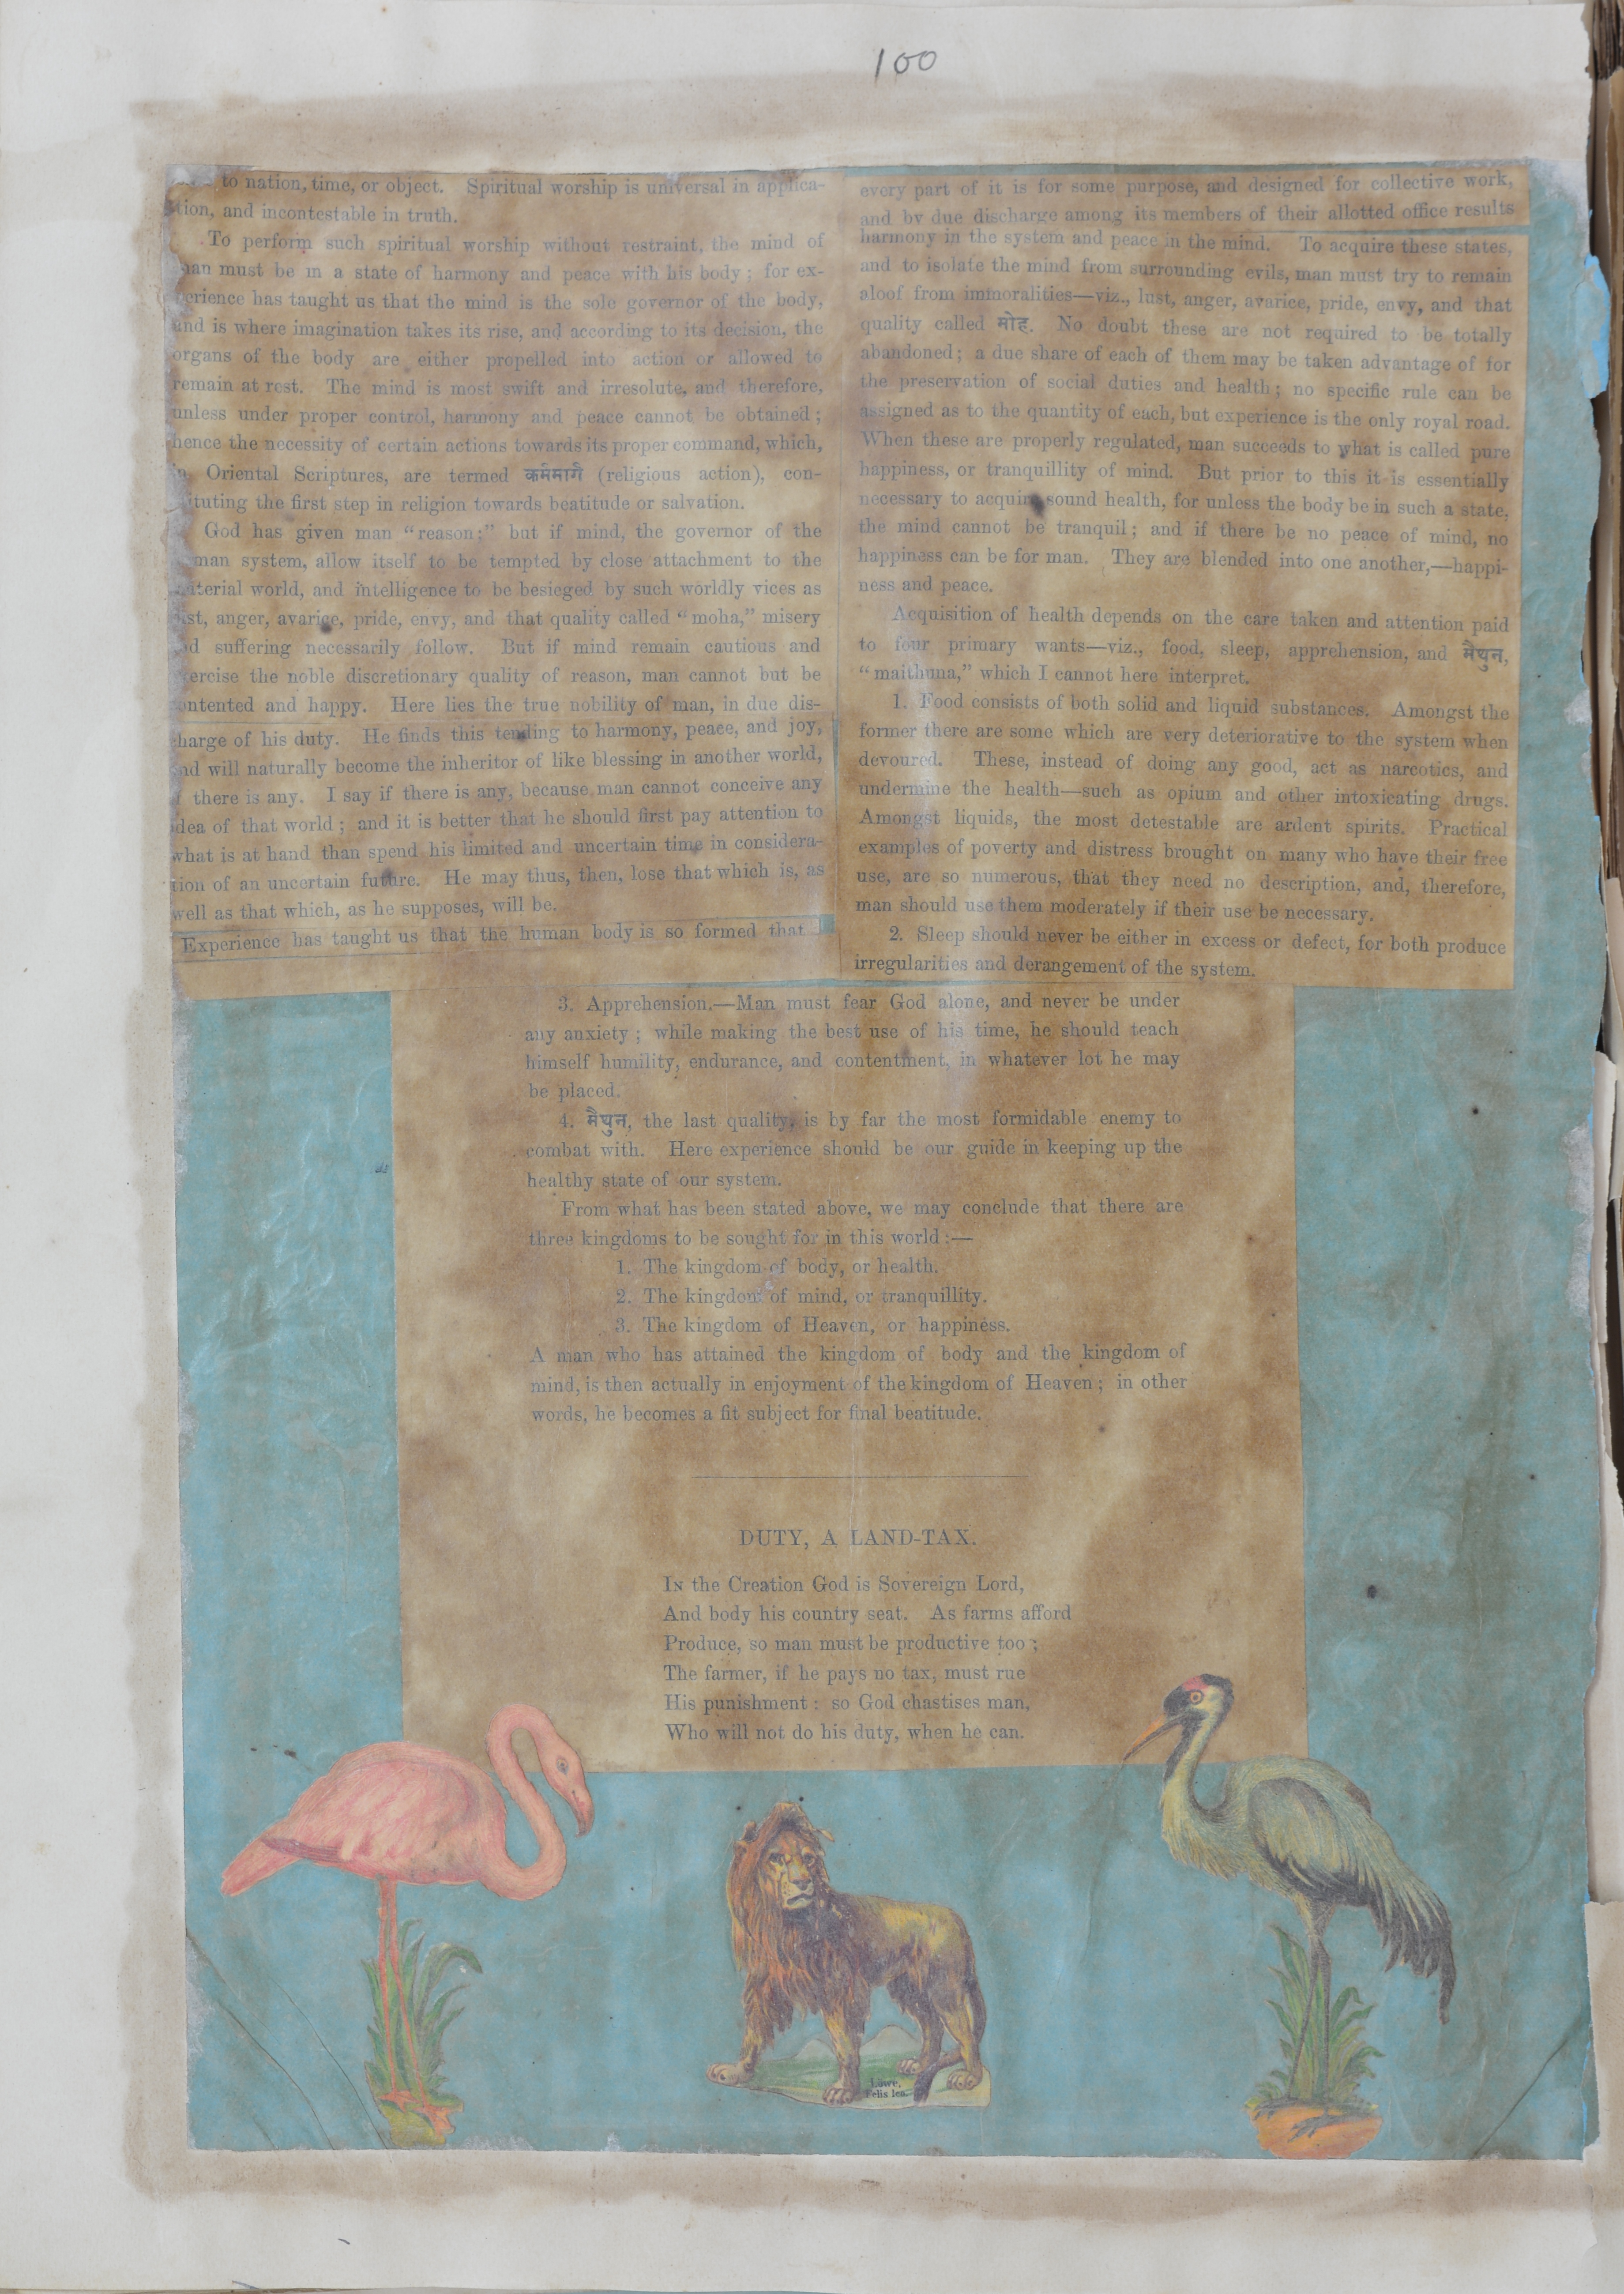 100
to nation, time, or object. Spiritual worship is universal in applica-
tion, and incontestable in truth.
To perform such spiritual worship without restraint, the mind of
man must be in a state of harmony and peace with his body: for ex-
perience has taught us that the mind is the sole governor of the body,
and is where imagination takes its rise, and according to its decision, the
organs of the body are either propelled into action or allowed to
remain at rest. The mind is most swift and irresolute, and therefore,
unless under proper control, harmony and peace cannot be obtained;
hence the necessity of certain actions towards its proper command, which,
in Oriental Scriptures, are termed कर्ममार्ग (religious action), con-
tituting the first step in religion towards beatitude or salvation.
God has given man "reason;" but if mind, the governor of the
man system, allow itself to be tempted by close attachment to the
terial world, and intelligence to be besieged by such worldly vices as
st, anger, avarice, pride, envy, and that quality called "moha," misery
d suffering necessarily follow. But if mind remain cautious and
ercise the noble discretionary quality of reason, man cannot but be
ontented and happy. Here lies the true nobility of man, in due dis-
harge of his duty. He finds this tending to harmony, peace, and joy,
nd will naturally become the inheritor of like blessing in another world,
there is any. I say if there is any, because man cannot conceive any
idea of that world; and it is better that he should first pay attention to
what is at hand than spend his limited and uncertain time in considera-
tion of an uncertain future. He may thus, then, lose that which is, as
well as that which, as he supposes, will be.
Experience has taught us that the human body is so formed that
every part of it is for some purpose, and designed for collective work,
and by due discharge among its members of their allotted office results
harmony in the system and peace in the mind. To acquire these states,
and to isolate the mind from surrounding evils, man must try to remain
aloof from immoralities—viz., lust, anger, avarice, pride, envy, and that
quality called मोह. No doubt these are not required to be totally
abandoned; a due share of each of them may be taken advantage of for
the preservation of social duties and health; no specific rule can be
assigned as to the quantity of each, but experience is the only royal road.
When these are properly regulated, man succeeds to what is called pure
happiness, or tranquillity of mind. But prior to this it is essentially
necessary to acquire sound health, for unless the body be in such a state,
the mind cannot be tranquil; and if there be no peace of mind, no
happiness can be for man. They are blended into one another,—happi-
ness and peace.
Acquisition of health depends on the care taken and attention paid
to four primary wants—viz., food, sleep, apprehension, and मैथुन,
"maithuna," which I cannot here interpret.
1. Food consists of both solid and liquid substances. Amongst the
former there are some which are very deteriorative to the system when
devoured. These, instead of doing any good, act as narcotics, and
undermine the health—such as opium and other intoxicating drugs.
Amongst liquids, the most detestable are ardent spirits. Practical
examples of poverty and distress brought on many who have their free
use, are so numerous, that they need no description, and, therefore,
man should use them moderately if their use be necessary.
2. Sleep should never be either in excess or defect, for both produce
irregularities and derangement of the system.
3. Apprehension.—Man must fear God alone, and never be under
any anxiety; while making the best use of his time, he should teach
himself humility, endurance, and contentment, in whatever lot he may
be placed.
4. मैथुन, the last quality, is by far the most formidable enemy to
combat with. Here experience should be our guide in keeping up the
healthy state of our system.
From what has been stated above, we may conclude that there are
three kingdoms to be sought for in this world:—
1. The kingdom of body, or health.
2. The kingdom of mind, or tranquillity.
3. The kingdom of Heaven, or happiness.
A man who has attained the kingdom of body and the kingdom of
mind, is then actually in enjoyment of the kingdom of Heaven; in other
words, he becomes a fit subject for final beatitude.
DUTY, A LAND-TAX.
IN the Creation God is Sovereign Lord,
And body his country seat. As farms afford
Produce, so man must be productive too;
The farmer, if he pays no tax, must rue
His punishment: so God chastises man,
Who will not do his duty, when he can.
Löwe.
Felis leo.